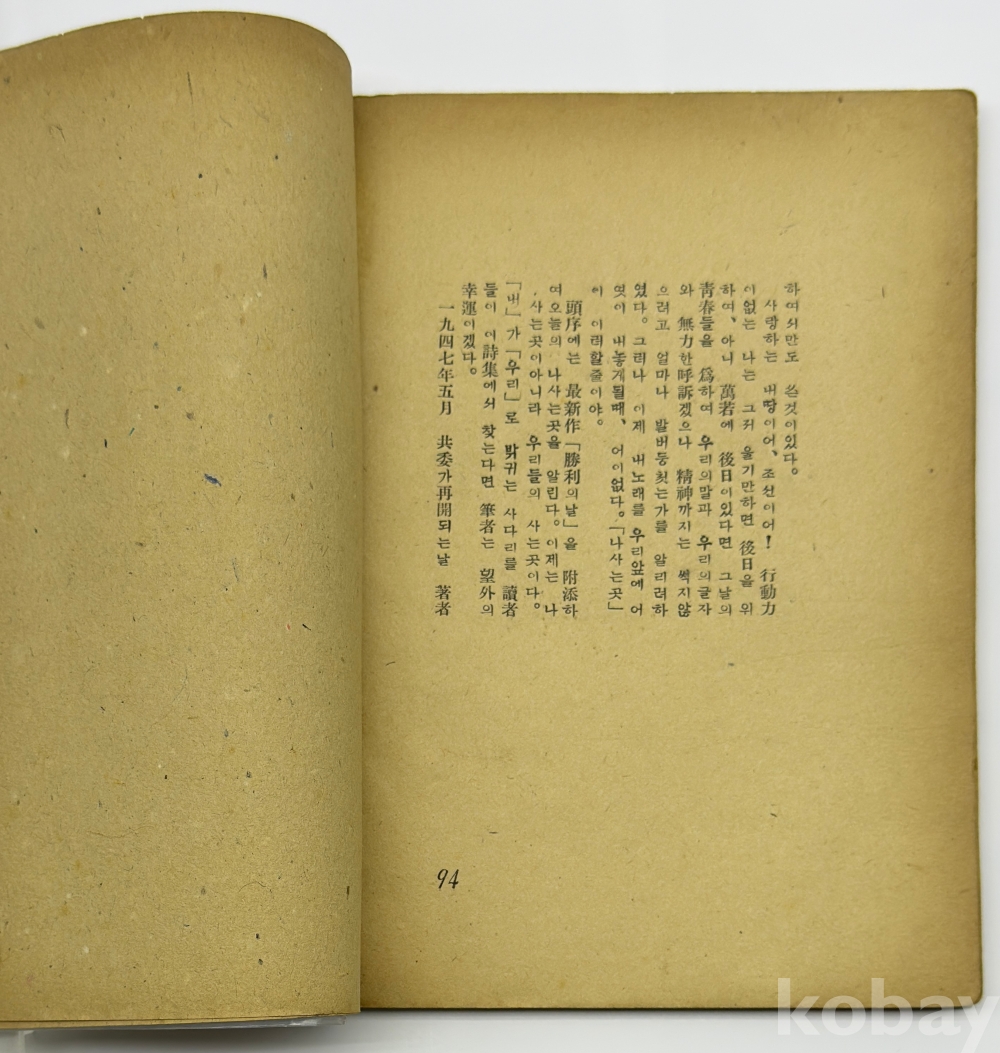 하여서만도 쓴것이있다。
사랑하는 내땅이어、조선이어! 行動力
이없는 나는 그저 울기만하면 後日을 위
하여、아니 萬若에 後日이있다면 그날의
靑春들을 爲하여 우리의말과 우리의글자
와 無力한呼訴겠으나 精神까지는 썩지않
으려고 얼마나 발버둥첫는가를 알리려하
였다。그러나 이제 내노래를 우리앞에 어
엿이 내놓게될때、어이없다。「나사는곳」
이 이러할줄이야。
頭序에는 最新作「勝利의날」을 附添하
여오늘의 나사는곳을 알린다。이제는 나
사는곳이아니라 우리들의 사는곳이다。
「내」가「우리」로 밝귀는 사다리를 讀者
들이 이詩集에서 찾는다면 筆者는 望外의
幸運이겠다。
一九四七年五月 共委가再開되는날 著者
94
kobay